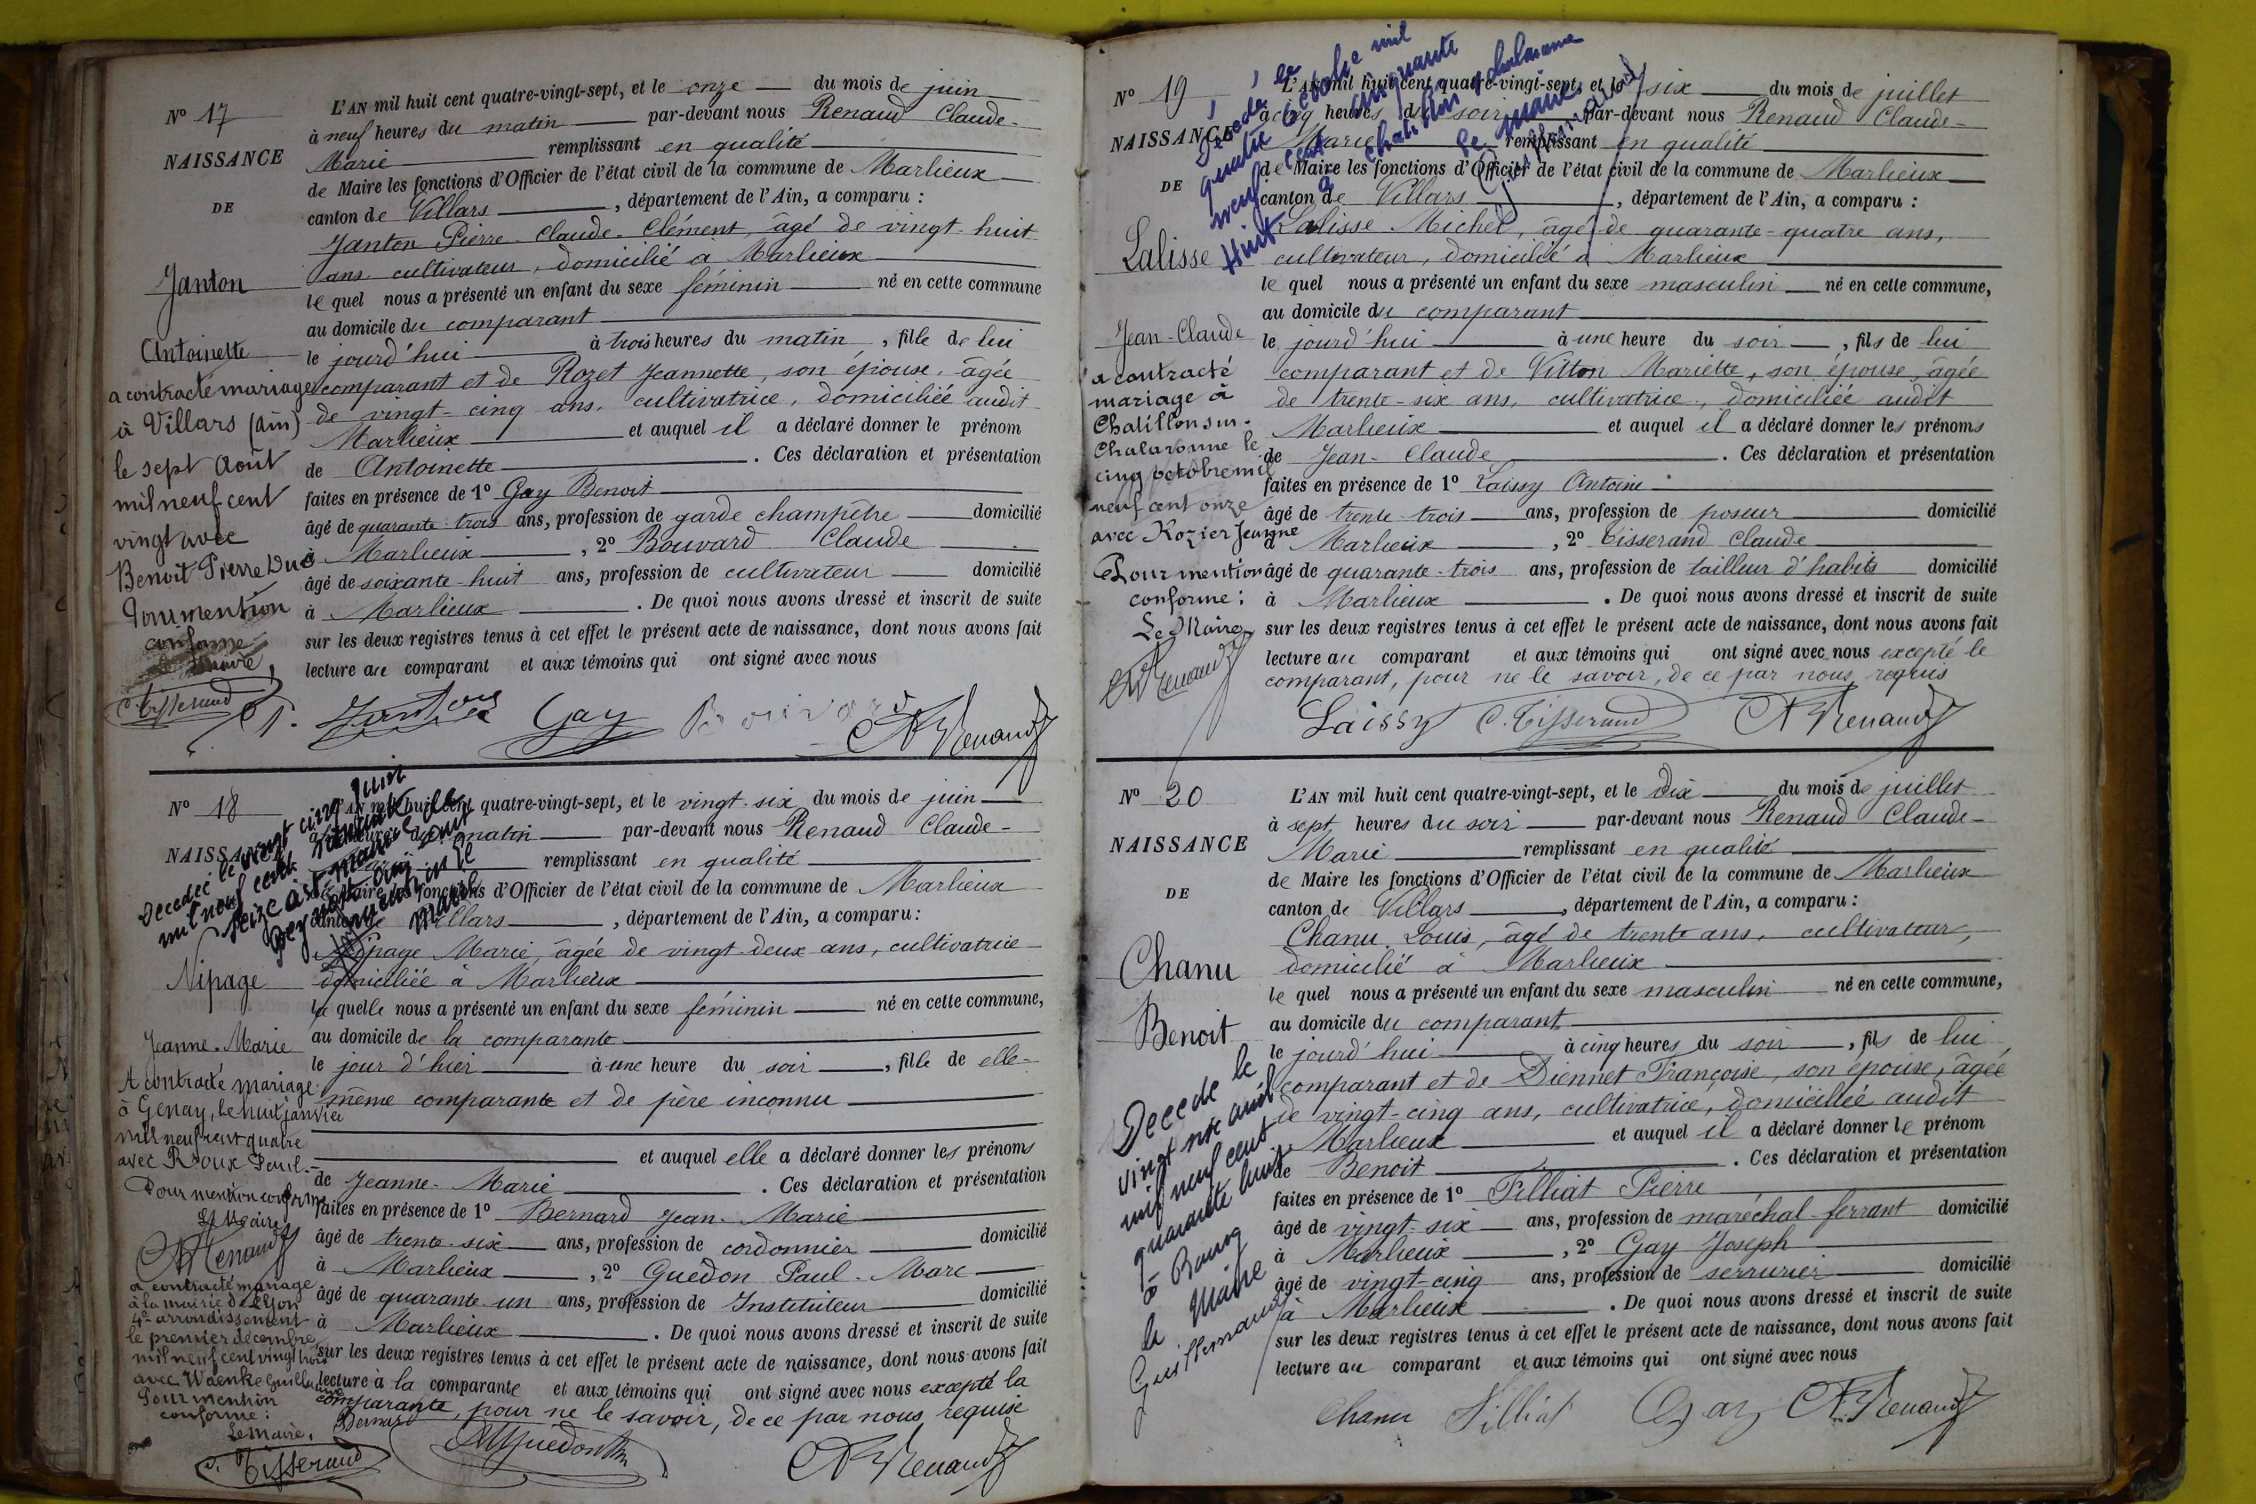 N° 17
NAISSANCE
DE
Janton
Antoinette
a contracté mariage
à Villars (ain)
le sept août
mil neuf cent
vingt avec
Benoit Pierre Duc
Pour mention
conforme
le maire,
C. Tisserand
L'AN mil huit cent quatre-vingt-sept, et le onze du mois de juin
à neuf heures du matin par-devant nous Renaud Claude-
Marie remplissant en qualité
de Maire les fonctions d'Officier de l'état civil de la commune de Marlieux
canton de Villars, département de l'Ain, a comparu :
Janton Pierre-Claude-Clément, âgé de vingt-huit
ans, cultivateur, domicilié à Marlieux
le quel nous a présenté un enfant du sexe féminin né en cette commune
au domicile du comparant
le jourd'hui à trois heures du matin, fille de lui
comparant et de Rozet Jeannette, son épouse, âgée
de vingt-cinq ans, cultivatrice, domiciliée audit
Marlieux et auquel il a déclaré donner le prénom
de Antoinette. Ces déclaration et présentation
faites en présence de 1° Gay Benoit
âgé de quarante-trois ans, profession de garde champêtre domicilié
à Marlieux, 2° Bouvard Claude
âgé de soixante-huit ans, profession de cultivateur domicilié
à Marlieux. De quoi nous avons dressé et inscrit de suite
sur les deux registres tenus à cet effet le présent acte de naissance, dont nous avons fait
lecture au comparant et aux témoins qui ont signé avec nous
Janton Gay Bouvard Renaud
N° 18
NAISSANCE
Décédée le vingt cinq Juin
mil neuf cent
seize
le maire
Nipage
Jeanne-Marie
A contracté mariage
à Genay, le huit janvier
mil neuf cent quatre
avec Roux Paul.-
Pour mention conforme
Le Maire
Renaud
a contracté mariage
à la mairie de Lyon
4e arrondissement
le premier décembre
mil neuf cent vingt trois
avec Waenke Guillaume
Pour mention
conforme :
Le Maire,
C. Tisserand
L'AN mil huit cent quatre-vingt-sept, et le vingt-six du mois de juin
heures du matin par-devant nous Renaud Claude-
Marie remplissant en qualité
de Maire les fonctions d'Officier de l'état civil de la commune de Marlieux
canton de Villars, département de l'Ain, a comparu :
Nipage Marie, âgée de vingt-deux ans, cultivatrice
domiciliée à Marlieux
la quelle nous a présenté un enfant du sexe féminin né en cette commune,
au domicile de la comparante
le jour d'hier à une heure du soir, fille de elle-
même comparante et de père inconnu
et auquel elle a déclaré donner les prénoms
de Jeanne-Marie. Ces déclaration et présentation
faites en présence de 1° Bernard Jean-Marie
âgé de trente-six ans, profession de cordonnier domicilié
à Marlieux, 2° Guédon Paul-Marc
âgé de quarante-un ans, profession de Instituteur domicilié
à Marlieux. De quoi nous avons dressé et inscrit de suite
sur les deux registres tenus à cet effet le présent acte de naissance, dont nous avons fait
lecture à la comparante et aux témoins qui ont signé avec nous excepté la
comparante, pour ne le savoir, de ce par nous requise
Bernard Guédon Renaud
N° 19
NAISSANCE
DE
Décédé le
quatre Octobre mil
neuf cent cinquante
Huit à Chatillon s chalaronne
le maire
Lalisse
Jean-Claude
a contracté
mariage à
Chatillon sur-
Chalaronne le
cinq octobre mil
neuf cent onze
avec Rozier Jeanne
Pour mention
conforme :
Le Maire,
Renaud
L'AN mil huit cent quatre-vingt-sept, et le six du mois de juillet
à cinq heures du soir par-devant nous Renaud Claude-
Marie remplissant en qualité
de Maire les fonctions d'Officier de l'état civil de la commune de Marlieux
canton de Villars, département de l'Ain, a comparu :
Lalisse Michel, âgé de quarante-quatre ans,
cultivateur, domicilié à Marlieux
le quel nous a présenté un enfant du sexe masculin né en cette commune,
au domicile du comparant
le jourd'hui à une heure du soir, fils de lui
comparant et de Vitton Mariette, son épouse, âgée
de trente-six ans, cultivatrice, domiciliée audit
Marlieux et auquel il a déclaré donner les prénoms
de Jean-Claude. Ces déclaration et présentation
faites en présence de 1° Laissy Antoine
âgé de trente-trois ans, profession de poseur domicilié
à Marlieux, 2° Tisserand Claude
âgé de quarante-trois ans, profession de tailleur d'habits domicilié
à Marlieux. De quoi nous avons dressé et inscrit de suite
sur les deux registres tenus à cet effet le présent acte de naissance, dont nous avons fait
lecture au comparant et aux témoins qui ont signé avec nous excepté le
comparant, pour ne le savoir, de ce par nous requis
Laissy C. Tisserand Renaud
N° 20
NAISSANCE
DE
Chanu
Benoit
Décédé le
vingt neuf
mil neuf cent
quarante huit
à Bourg
le Maire
Guillemaud
L'AN mil huit cent quatre-vingt-sept, et le dix du mois de juillet
à sept heures du soir par-devant nous Renaud Claude-
Marie remplissant en qualité
de Maire les fonctions d'Officier de l'état civil de la commune de Marlieux
canton de Villars, département de l'Ain, a comparu :
Chanu Louis, âgé de trente ans, cultivateur,
domicilié à Marlieux
le quel nous a présenté un enfant du sexe masculin né en cette commune,
au domicile du comparant
le jourd'hui à cinq heures du soir, fils de lui
comparant et de Diennet Françoise, son épouse, âgée
de vingt-cinq ans, cultivatrice, domiciliée audit
Marlieux et auquel il a déclaré donner le prénom
de Benoit. Ces déclaration et présentation
faites en présence de 1° Filliat Pierre
âgé de vingt-six ans, profession de maréchal-ferrant domicilié
à Marlieux, 2° Gay Joseph
âgé de vingt-cinq ans, profession de serrurier domicilié
à Marlieux. De quoi nous avons dressé et inscrit de suite
sur les deux registres tenus à cet effet le présent acte de naissance, dont nous avons fait
lecture au comparant et aux témoins qui ont signé avec nous
Chanu Filliat Gay Renaud